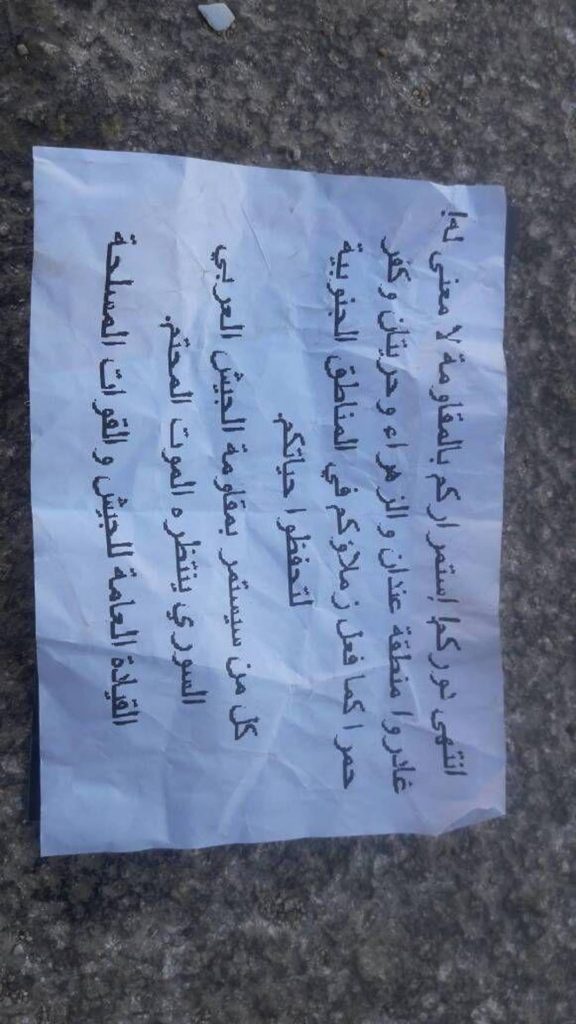 انتهى دوركم! إستمراركم بالمقاومة لا معنى له!
غادروا منطقة عندان والزهراء وحريتان وكفر
حمرا كما فعل زملاؤكم في المناطق الجنوبية
لتحفظوا حياتكم.
كل من سيستمر بمقاومة الجيش العربي
السوري ينتظره الموت المحتم.
القيادة العامة للجيش والقوات المسلحة